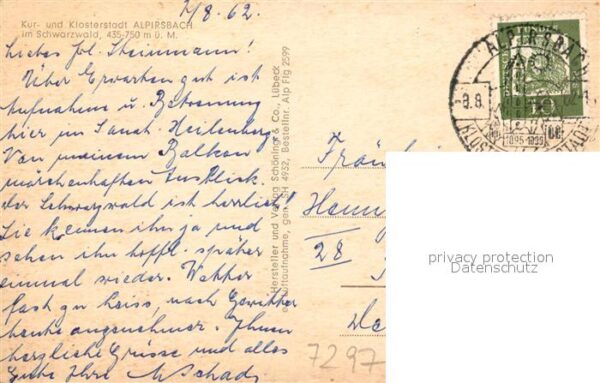 7/8.62.
Kur- und Klosterstadt ALPIRSBACH
im Schwarzwald, 435-750 m ü. M.
Liebes Frl. Steinmann!
Über Erwarten gut ist
Aufnahme u. Betreuung
hier im Sanat. Heilenberg
Von meinem Balkon
märchenhaften Ausblick.
der Schwarzwald ist herrlich!
Sie kennen ihn ja und
sehen ihn hoffl. später
einmal wieder. Wetter
fast zu heiss, nach Gewitter
heute angenehmer. Ihnen
herzliche Grüsse und alles
Gute Ihre MSchad
Hersteller und Verlag Schöning & Co., Lübeck
Luftaufnahme, gen. SH 4932, Bestellnr. Alp Flg 2599
ALPIRSBACH
8.8.
1095-1895
KLOS
10
Fräulein
Hann
28
7297
privacy protection
Datenschutz